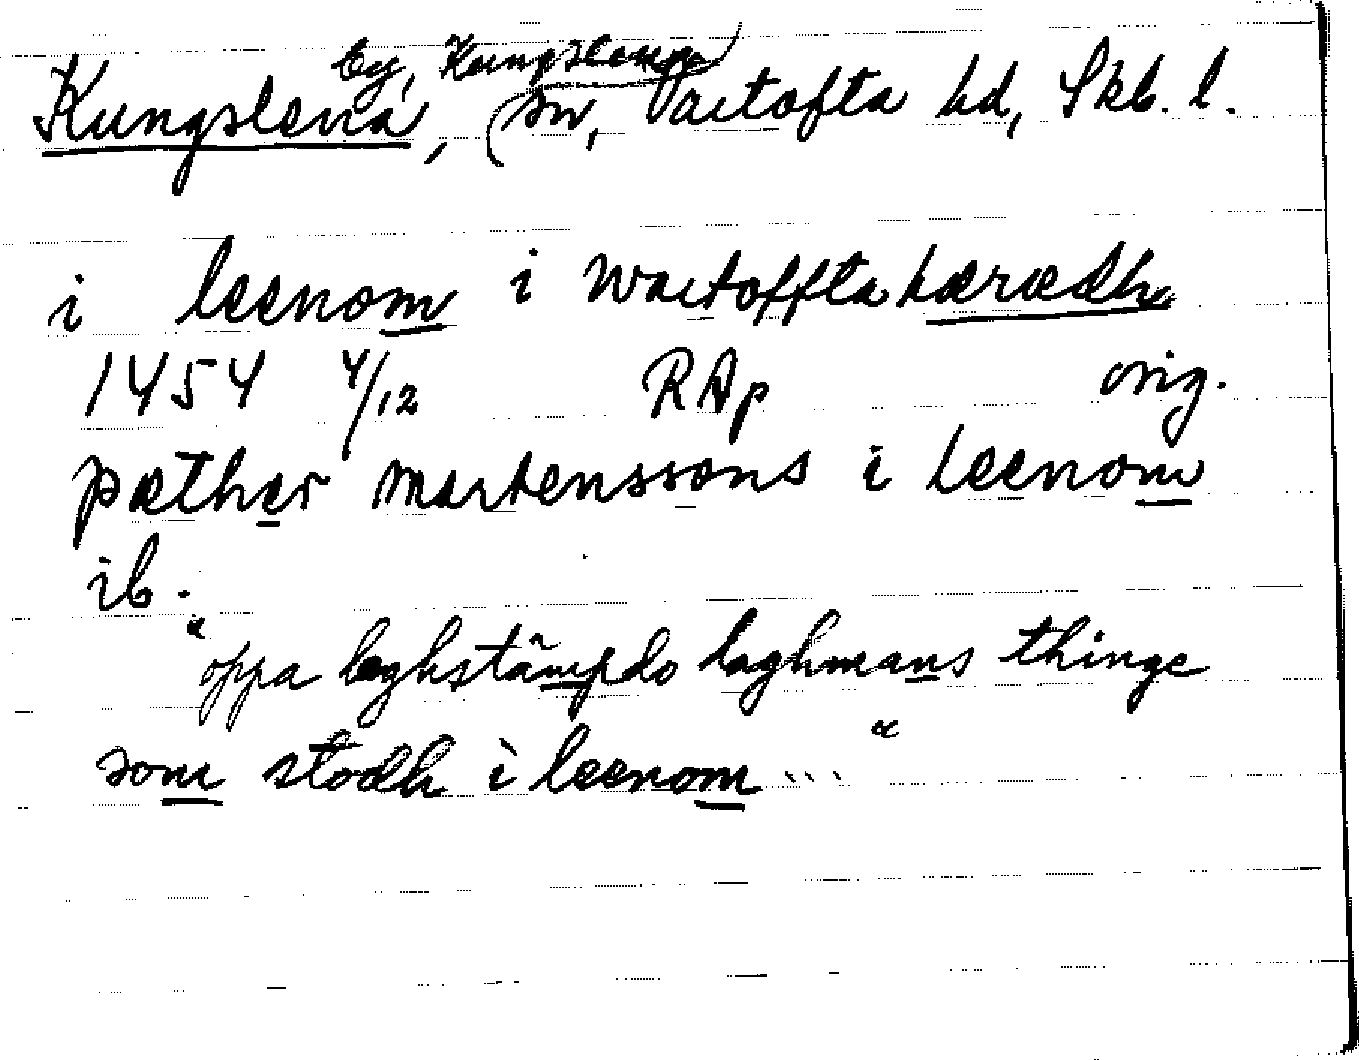 by, Kungslena
Kungslena, sn, Vartofta hd, Skb. l.
i leenom i wartofftahæradh
1454 4/12 RAp orig.
pæther martenssons i leenom
ib.
"oppa laghstämpdo laghmans thinge
som stodh i leenom ... "